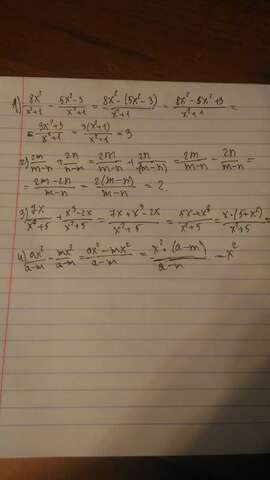 1) 8x²/x²+1 - 5x²-3/x²+1 = 8x²-(5x²-3)/x²+1 = 8x²-5x²+3/x²+1 =
= 3x²+3/x²+1 = 3(x²+1)/x²+1 = 3
2) 2m/m-n + 2n/n-m = 2m/m-n + 2n/-(m-n) = 2m/m-n - 2n/m-n =
= 2m-2n/m-n = 2(m-n)/m-n = 2.
3) 7x/x²+5 + x³-2x/x²+5 = 7x+x³-2x/x²+5 = 5x+x³/x²+5 = x·(5+x²)/x²+5 =
4) ax²/a-m - mx²/a-m = ax²-mx²/a-m = x²·(a-m)/a-m = x²